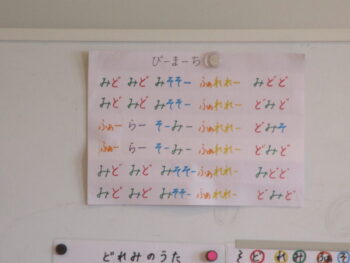 びーまーち
みど みど みそそー ふぁれれー みどど
みど みど みそそー ふぁれれー どみど
ふぁー らー そーみー ふぁれれー どみそ
ふぁー らー そーみー ふぁれれー どみど
みど みど みそそー ふぁれれー みどど
みど みど みそそー ふぁれれー どみど
どれみのうた
ど れ み ふぁ そ